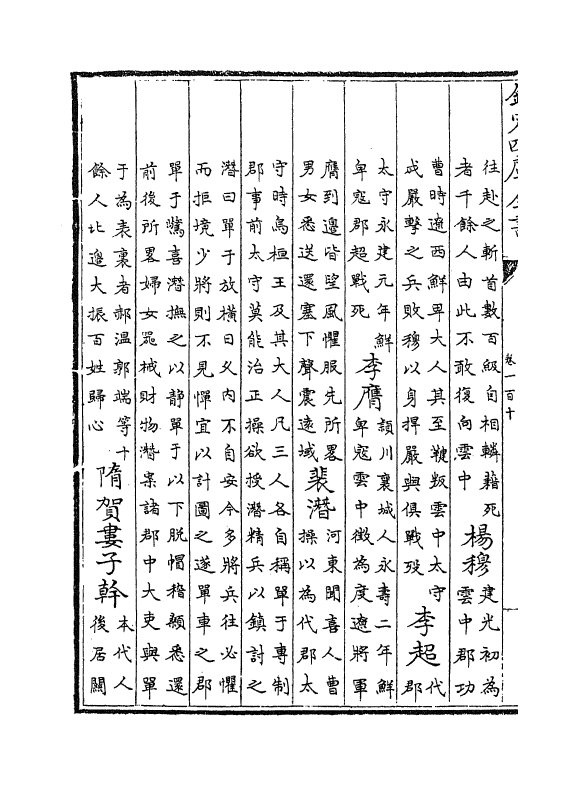 欽定四庫全書
卷一百十
往赴之斬首數百級自相轔藉死
者千餘人由此不敢復向雲中
楊穆
建光初為
雲中郡功
曹時遼西鮮卑大人其至鞬叛雲中太守
成嚴擊之兵敗穆以身捍嚴與俱戰歿
李超
代
郡
太守永建元年鮮
卑寇郡超戰死
李膺
頴川襄城人永壽二年鮮
卑寇雲中徴為度遼將軍
膺到邊皆望風懼服先所畧
男女悉送還塞下聲震遠域
裴潛
河東聞喜人曹
操以為代郡太
守時烏桓王及其大人凡三人各自稱單于專制
郡事前太守莫能治正操欲授潛精兵以鎮討之
潛曰單于放橫日乆内不自安今多將兵往必懼
而拒境少將則不見憚宜以計圖之遂單車之郡
單于驚喜潛撫之以静單于以下脫帽稽顙悉還
前後所畧婦女器械財物潛案諸郡中大吏與單
于為表裏者郝溫郭端等十
餘人北邊大振百姓歸心
隋賀婁子幹
本代人
後居關